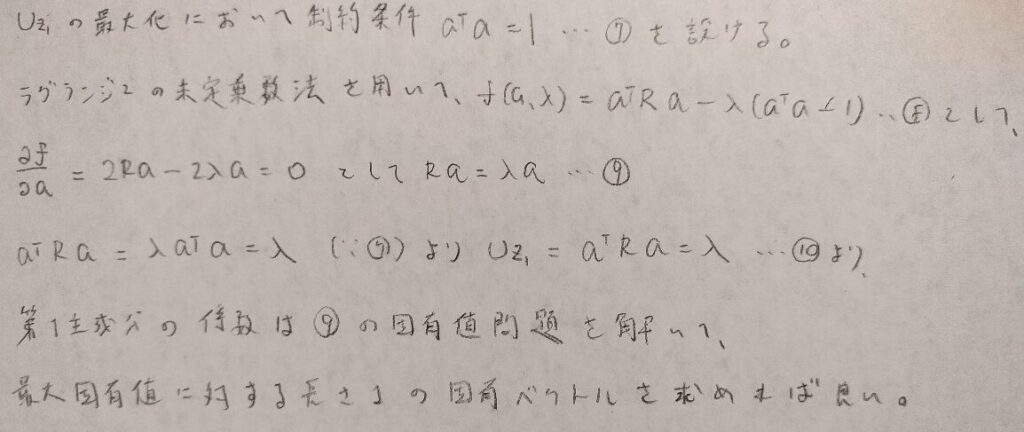 Uz₁ の最大化において制約条件 aᵀa = 1 … ⑦ を設ける。
ラグランジュの未定乗数法を用いて、f(a, λ) = aᵀRa − λ(aᵀa − 1) … ⑧ として、
∂f/∂a = 2Ra − 2λa = 0 として Ra = λa … ⑨
aᵀRa = λaᵀa = λ (∵⑦) より Uz₁ = aᵀRa = λ … ⑩ より、
第1主成分の係数は ⑨ の固有値問題を解いて、
最大固有値に対する長さ1の固有ベクトルを求めれば良い。